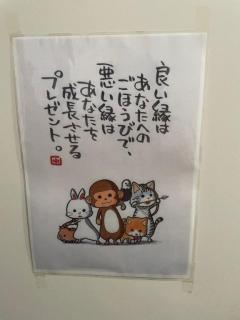 良い縁は
あなたへの
ごほうびで、
悪い縁は
あなたを
成長させる
プレゼント。